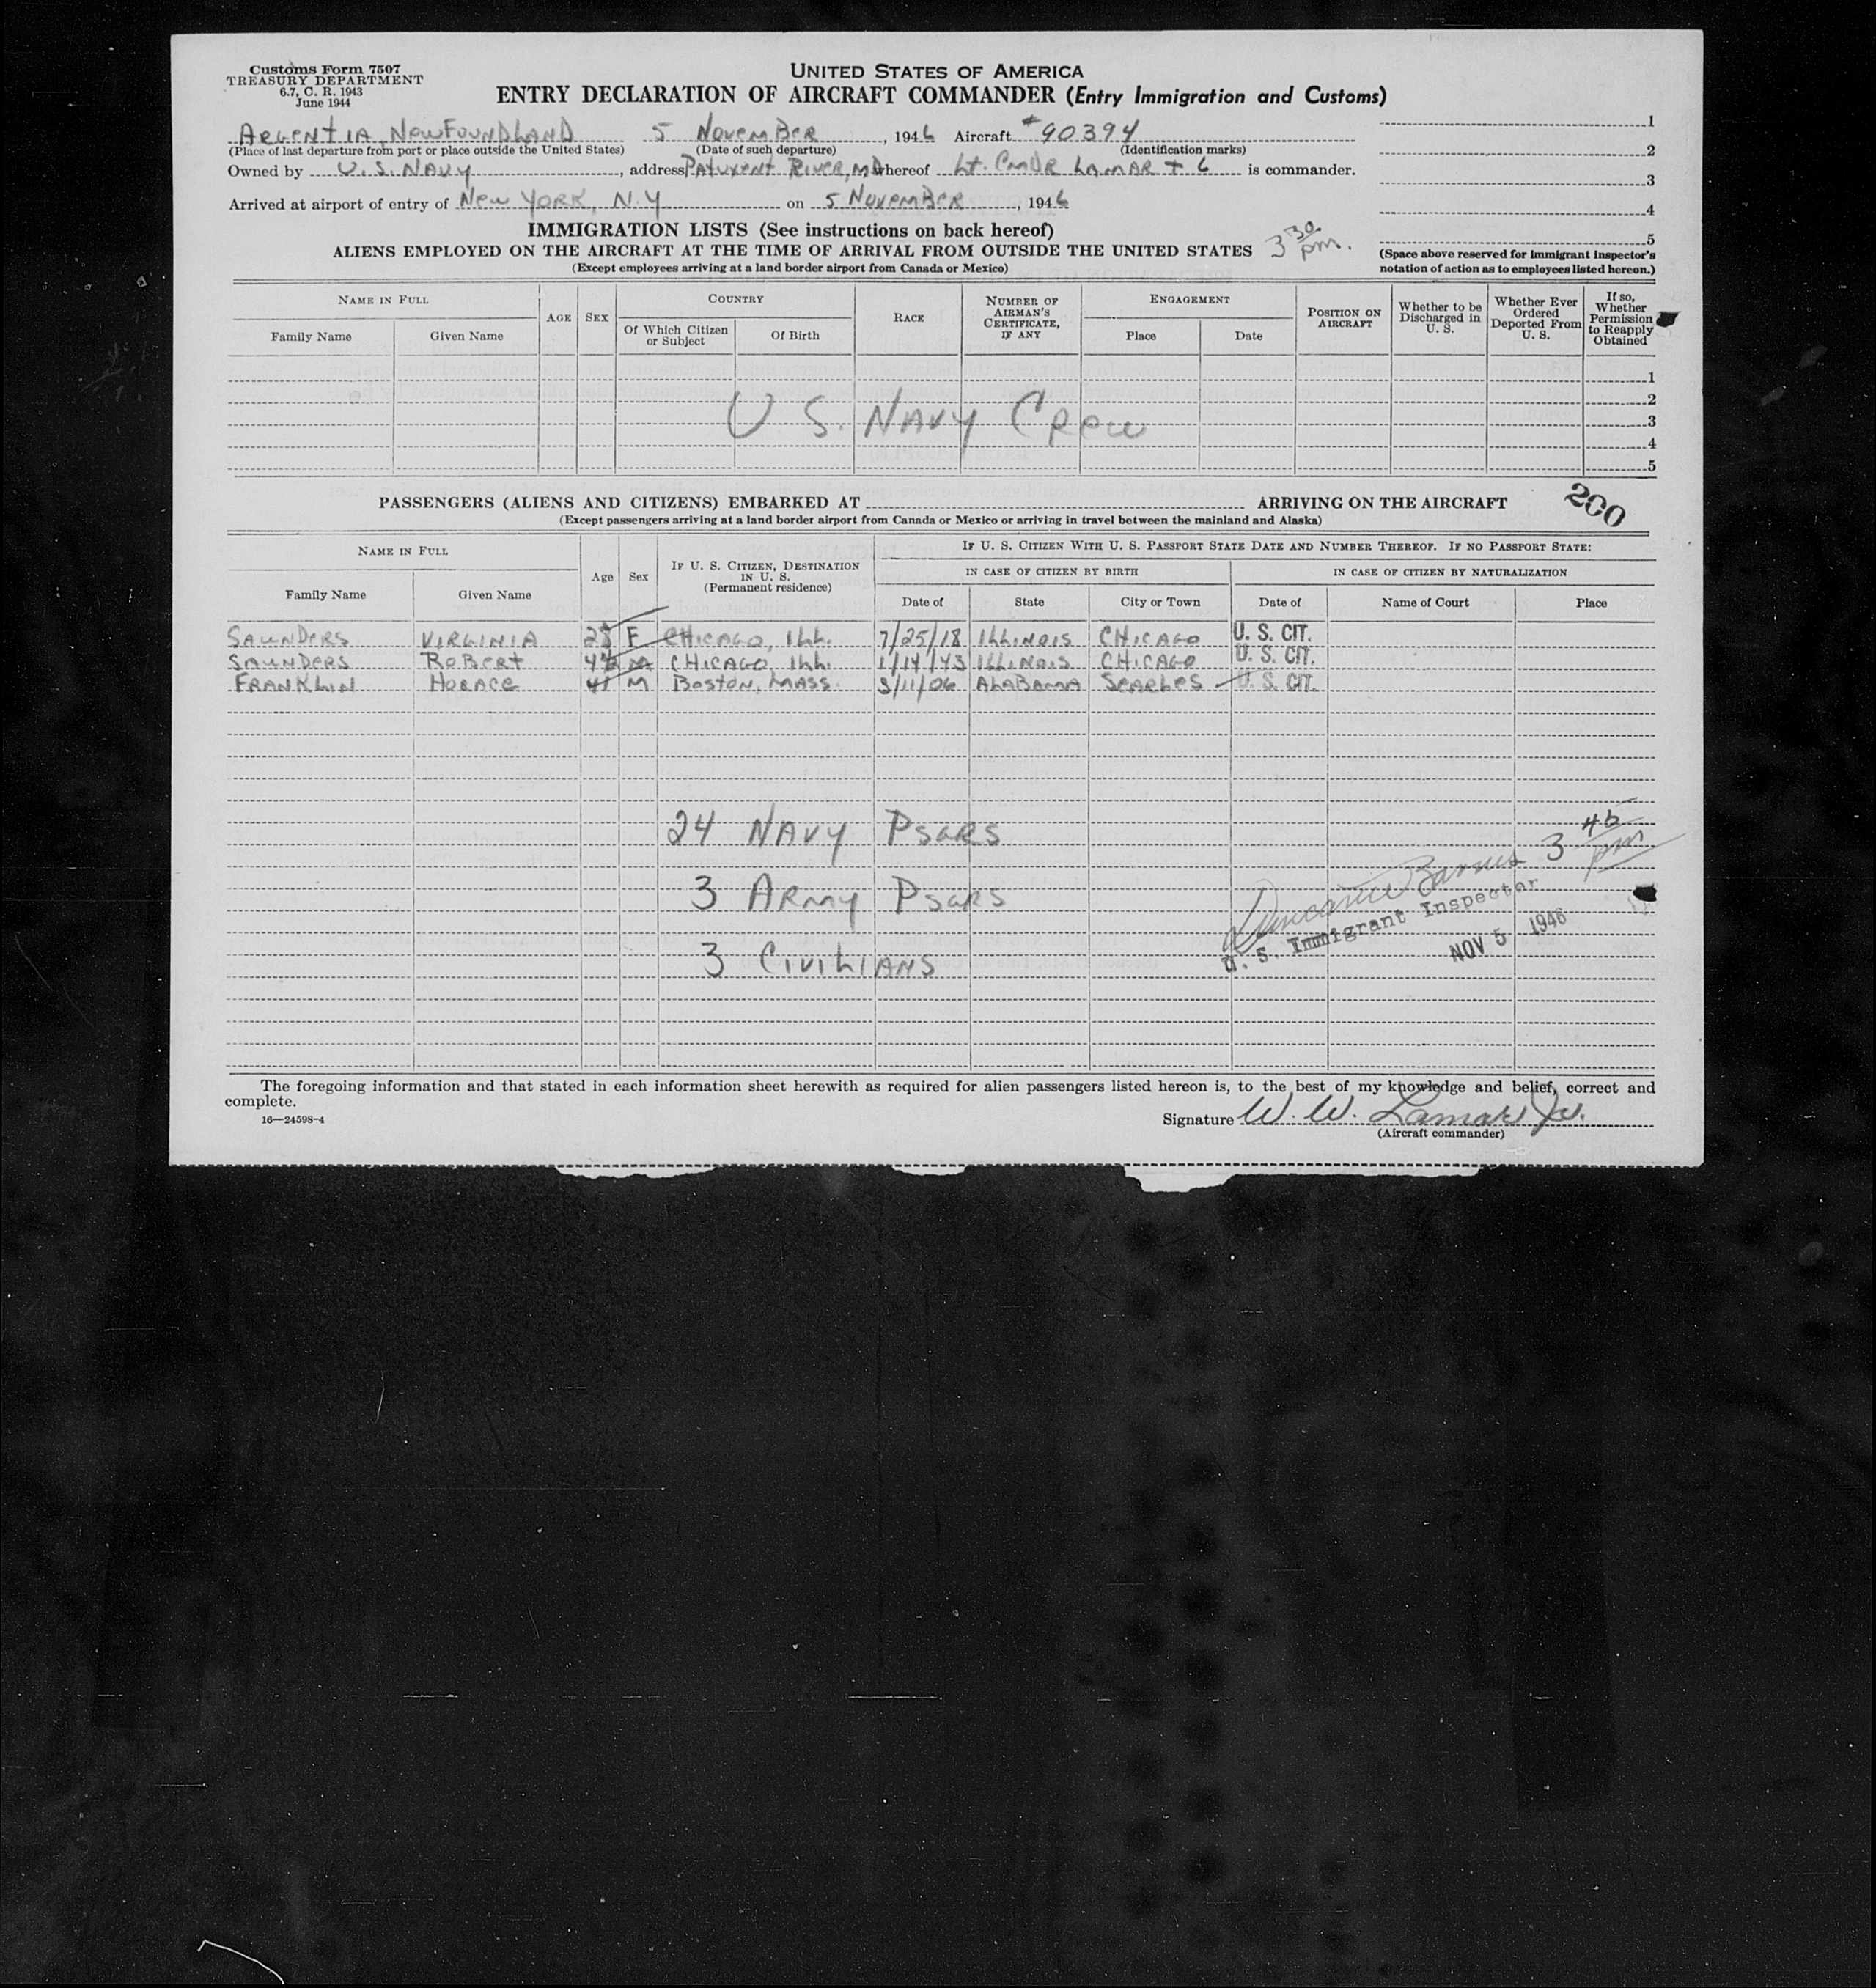 Customs Form 7507
TREASURY DEPARTMENT
6.7, C. R. 1943
June 1944
UNITED STATES OF AMERICA
ENTRY DECLARATION OF AIRCRAFT COMMANDER (Entry Immigration and Customs)
ARGENTIA, NEWFOUNDLAND 5 NOVEMBER, 1946 Aircraft #90394
(Place of last departure from port or place outside the United States) (Date of such departure) (Identification marks)
Owned by U.S. NAVY, address PATUXENT RIVER, MD whereof Lt. CMDR LAMAR + 6 is commander.
Arrived at airport of entry of NEW YORK, N.Y on 5 NOVEMBER, 1946
1
2
3
4
5
(Space above reserved for Immigrant Inspector's
notation of action as to employees listed hereon.)
IMMIGRATION LISTS (See instructions on back hereof)
ALIENS EMPLOYED ON THE AIRCRAFT AT THE TIME OF ARRIVAL FROM OUTSIDE THE UNITED STATES 3 30 pm.
(Except employees arriving at a land border airport from Canada or Mexico)
NAME IN FULL AGE SEX COUNTRY RACE NUMBER OF AIRMAN'S CERTIFICATE, IF ANY ENGAGEMENT POSITION ON AIRCRAFT Whether to be Discharged in U. S. Whether Ever Ordered Deported From U. S. If so, Whether Permission to Reapply Obtained
Family Name Given Name Of Which Citizen or Subject Of Birth Place Date
1
2
U.S. NAVY CREW
3
4
5
PASSENGERS (ALIENS AND CITIZENS) EMBARKED AT ARRIVING ON THE AIRCRAFT 200
(Except passengers arriving at a land border airport from Canada or Mexico or arriving in travel between the mainland and Alaska)
NAME IN FULL Age Sex IF U. S. CITIZEN, DESTINATION IN U. S. (Permanent residence) IF U. S. CITIZEN WITH U. S. PASSPORT STATE DATE AND NUMBER THEREOF. IF NO PASSPORT STATE:
IN CASE OF CITIZEN BY BIRTH IN CASE OF CITIZEN BY NATURALIZATION
Family Name Given Name Date of State City or Town Date of Name of Court Place
SAUNDERS VIRGINIA 28 F CHICAGO, ILL. 7/25/18 ILLINOIS CHICAGO U. S. CIT.
SAUNDERS ROBERT M CHICAGO, ILL. 1/14/43 ILLINOIS CHICAGO U. S. CIT.
FRANKLIN HORACE 41 M BOSTON, MASS. 3/11/06 ALABAMA SEARLES U. S. CIT.
24 NAVY PSGRS
3 ARMY PSGRS
3 CIVILIANS
3 45 pm
U. S. Immigrant Inspector
NOV 5 1946
The foregoing information and that stated in each information sheet herewith as required for alien passengers listed hereon is, to the best of my knowledge and belief, correct and
complete.
16—24598-4
Signature W. W. Lamar Jr.
(Aircraft commander)